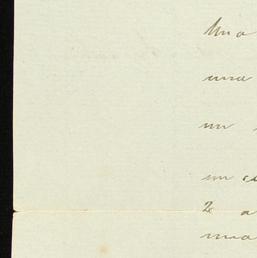 Una
una
un
un
2 a
una